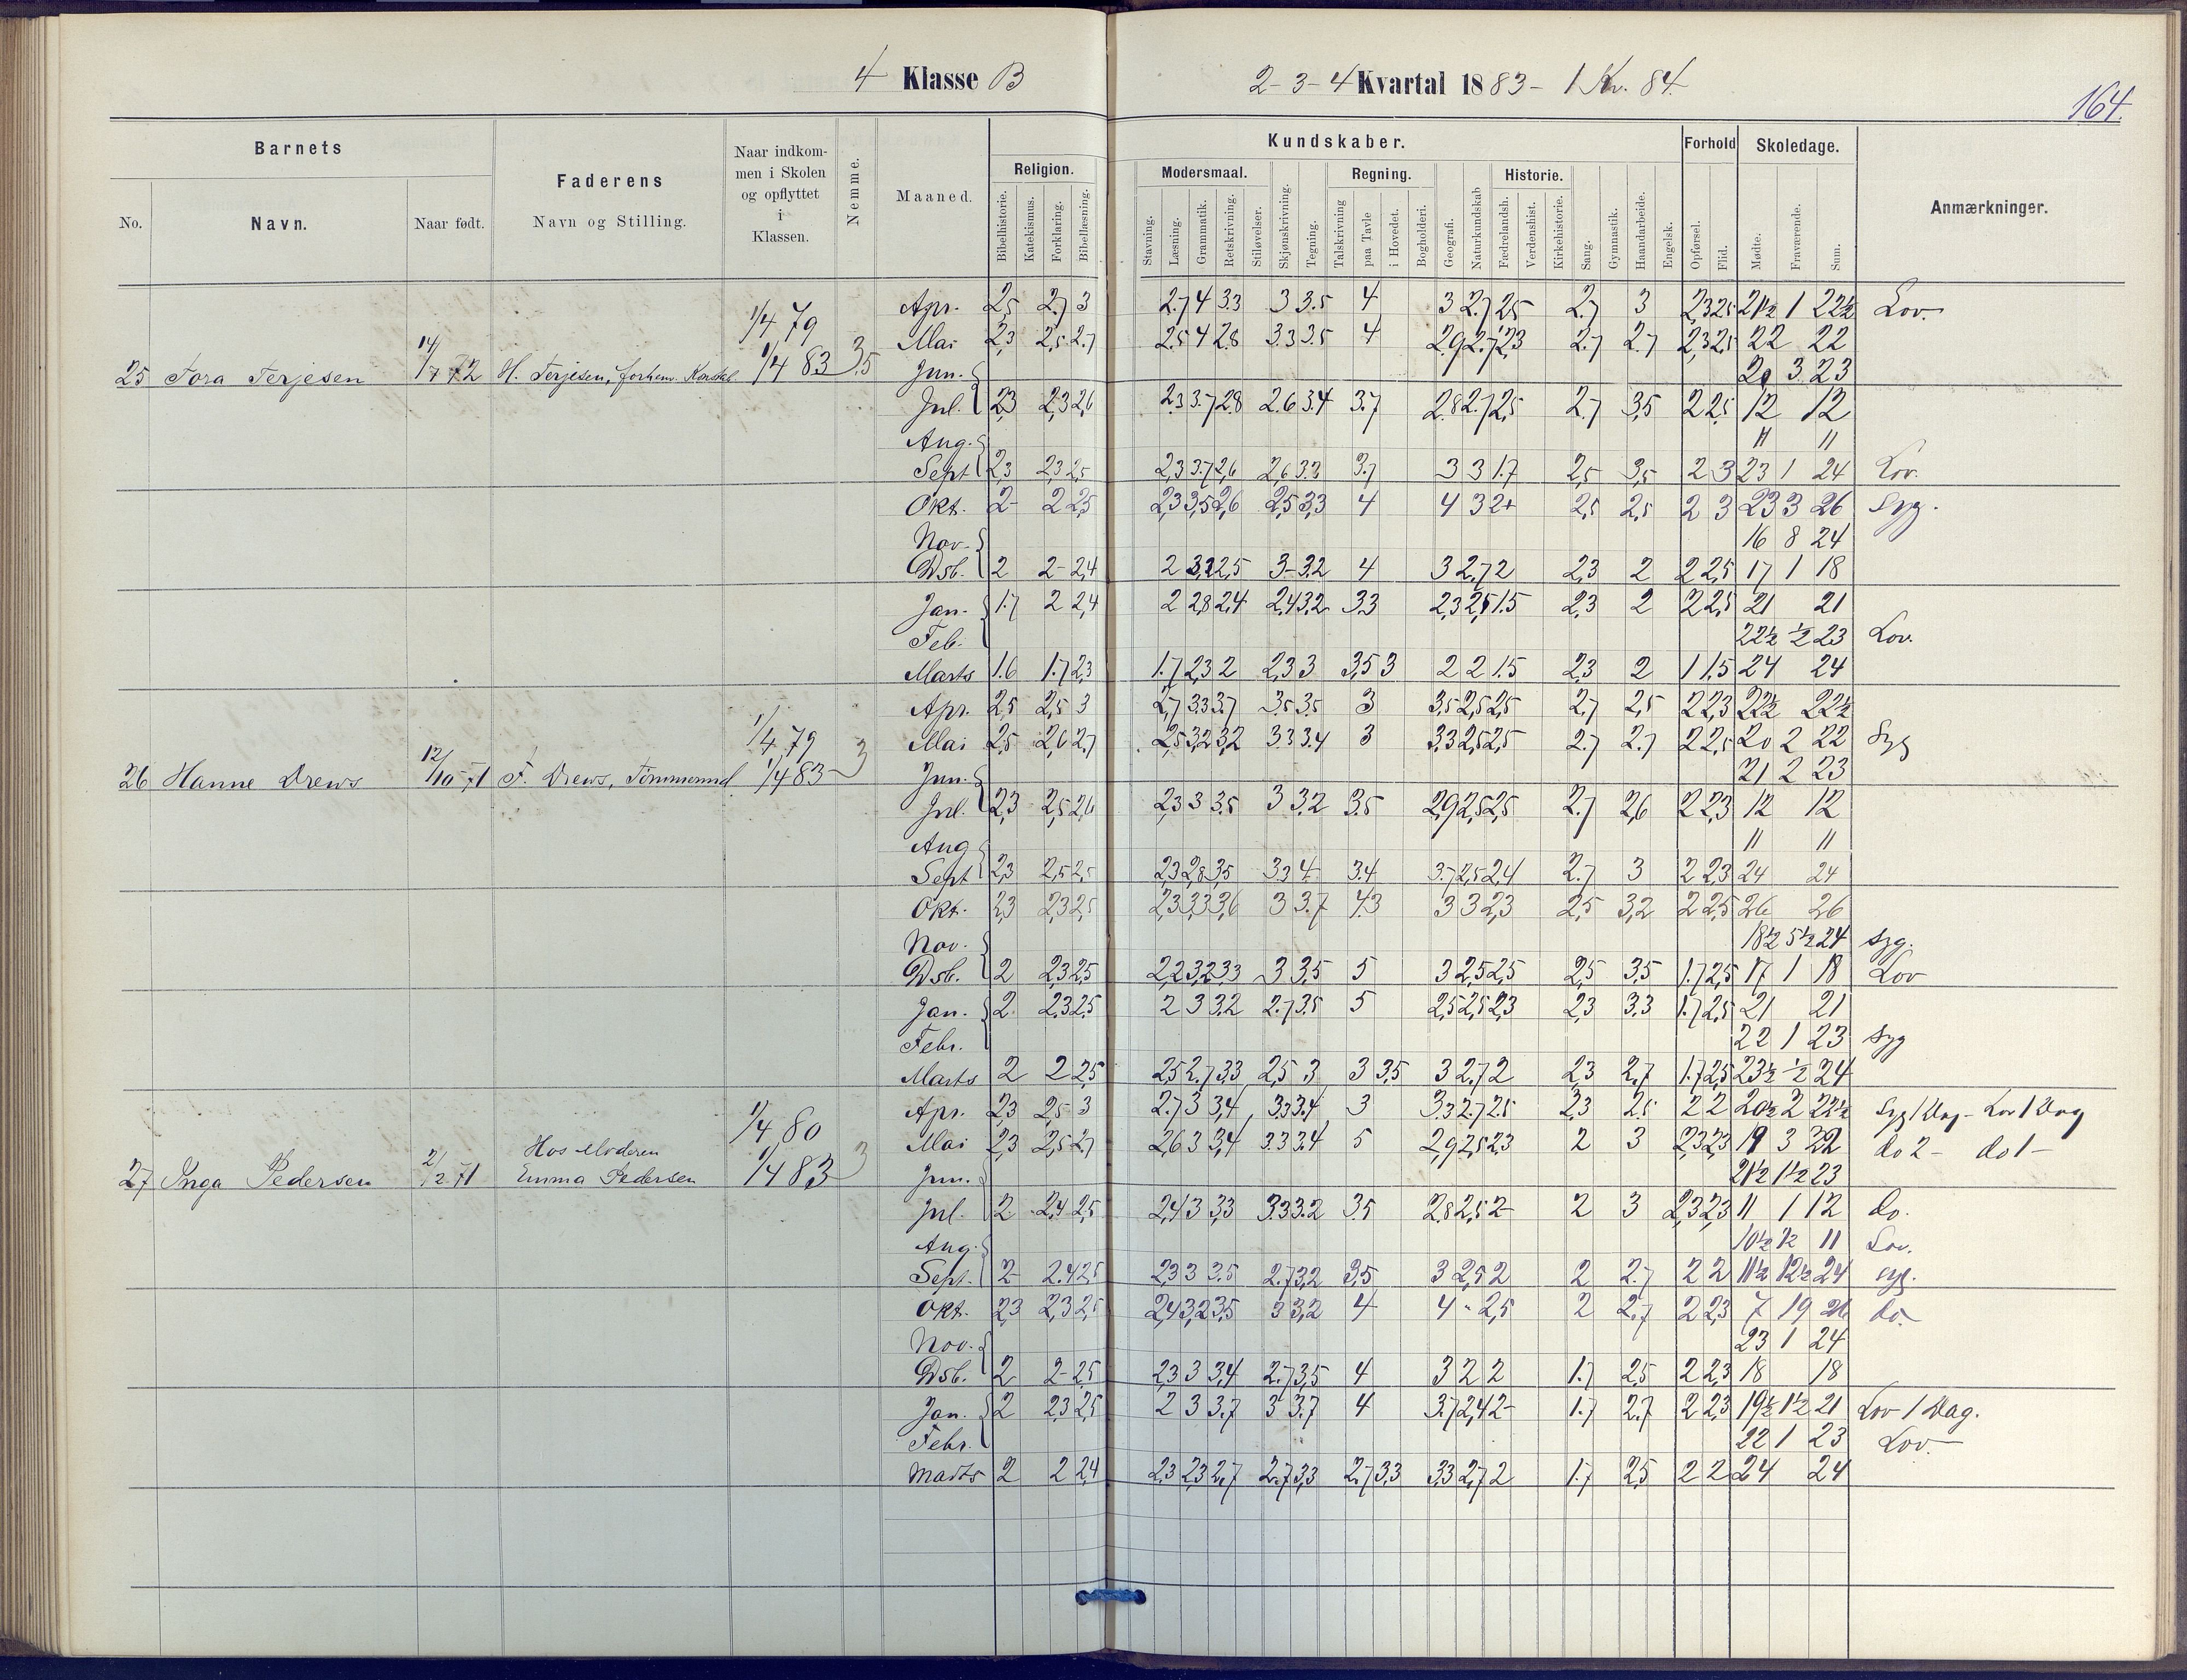 4 Klasse B
2-3-4 Kvartal 1883 - 1 Kv. 84.
164.
Barnets
Faderens
Naar indkommen i Skolen og opflyttet i Klassen.
Nemme.
Maaned.
Kundskaber.
Forhold
Skoledage.
Anmærkninger.
No.
Navn.
Naar født.
Navn og Stilling.
Religion.
Modersmaal.
Regning.
Historie.
Bibelhistorie. Katekismus. Forklaring. Bibellæsning. Stavning. Læsning. Grammatik. Retskrivning. Stiløvelser. Skjønskrivning. Tegning. Talskrivning paa Tavle i Hovedet. Bogholderi. Geografi. Naturkundskab Fædrelandsh. Verdenshist. Kirkehistorie. Sang. Gymnastik. Haandarbeide. Engelsk. Opførsel. Flid. Mødte. Fraværende. Sum.
25 Tora Terjesen 14/7 72 H. Terjesen, forhenv. Konstab. 1/4 79 1/4 83 3.5
Apr. 2,5 2.7 3 2.7 4 3.3 3 3.5 4 3 2.7 2.5 2.7 3 2,3 2,5 21½ 1 22½ Lov.
Mai 2,3 2,5 2.7 2.5 4 2.8 3.3 3.5 4 2.9 2.7 2,3 2.7 2.7 2,3 2,5 22 22
Jun. 20 3 23
Jul. 2,3 2,3 2,6 2.3 3.7 2.8 2.6 3.4 3.7 2.8 2.7 2,5 2.7 3,5 2 2,5 12 12
Aug. 11 11
Sept 2,3 2,3 2,5 2,3 3.7 2,6 2,6 3.3 3.7 3 3 1.7 2,5 3,5 2 3 23 1 24 Lov.
Okt. 2- 2 2,5 2,3 3,5 2,6 2,5 3,3 4 4 3 2+ 2,5 2,5 2 3 23 3 26 Syg.
Nov. 16 8 24
Dsb. 2 2- 2,4 2 3,2 2,5 3- 3.2 4 3 2,7 2 2,3 2 2 2,5 17 1 18
Jan. 1.7 2 2,4 2 2,8 2.4 2.4 3.2 3.3 2,3 2,5 1.5 2,3 2 2 2,5 21 21
Feb. 22½ ½ 23 Lov.
Marts 1.6 1.7 2,3 1.7 2,3 2 2,3 3 3,5 3 2 2 1.5 2,3 2 1 1,5 24 24
26 Hanne Drews 12/10 71 F. Drews, Tömmermd 1/4 79 1/4 83 3
Apr. 2,5 2,5 3 2,7 3.3 3.7 3.5 3.5 3 3,5 2,5 2,5 2.7 2,5 2 2,3 22½ 22½
Mai 2,5 2,6 2.7 2,5 3,2 3,2 3.3 3.4 3 3.3 2,5 2,5 2.7 2.7 2 2,5 20 2 22 Syg
Jun. 21 2 23
Jul. 2,3 2,5 2,6 2,3 3 3.5 3 3.2 3.5 2,9 2,5 2,5 2.7 2,6 2 2,3 12 12
Aug 11 11
Sept 2,3 2,5 2,5 2,3 2,8 3,5 3.3 4 3.4 3.7 2,5 2,4 2.7 3 2 2,3 24 24
Okt. 2,3 2,3 2,5 2,3 3,3 3,6 3 3.7 4.3 3 3 2,3 2,5 3,2 2 2,5 26 26
Nov. 18½ 5½ 24 Syg.
Dsb. 2 2,3 2,5 2,2 3,2 3,3 3 3,5 5 3 2,5 2,5 2,5 3,5 1.7 2,5 17 1 18 Lov
Jan. 2. 2,3 2,5 2 3 3.2 2.7 3.5 5 2,5 2,5 2,3 2,3 3.3 1.7 2,5 21 21
Febr. 22 1 23 Syg
Marts 2 2 2,5 2,5 2.7 3,3 2,5 3 3 3,5 3 2,7 2 2,3 2.7 1.7 2,5 23½ ½ 24
27 Inga Pedersen 2/2 71 Hos Moderen Emma Pedersen 1/4 80 1/4 83 3
Apr. 2,3 2,5 3 2.7 3 3,4 3.3 3.4 3 3.3 2.7 2.5 2,3 2,5 2 2 20½ 2 22½ Syg 1 Dag - Lov 1 Dag
Mai 2,3 2,5 2.7 2,6 3 3,4 3.3 3.4 5 2,9 2,5 2,3 2 3 2,3 2,3 19 3 22 do 2 - do 1 -
Jun. 21½ 1½ 23
Jul. 2. 2,4 2,5 2,4 3 3,3 3.3 3.2 3.5 2.8 2.5 2- 2 3 2,3 2,3 11 1 12 do.
Aug. 10½ ½ 11 Lov.
Sept. 2- 2.4 2,5 2,3 3 3.5 2.7 3,2 3,5 3 2,5 2 2 2.7 2 2 11½ 12½ 24 syg.
Okt. 2,3 2,3 2,5 2,4 3,2 3,5 3 3,2 4 4 - 2,5 2 2,7 2 2,3 7 19 26 do.
Nov. 23 1 24
Dsb. 2 2- 2,5 2,3 3 3,4 2.7 3,5 4 3 2 2 1.7 2,5 2 2,3 18 18
Jan. 2 2,3 2,5 2 3 3.7 3 3.7 4 3.7 2,4 2- 1.7 2.7 2 2,3 19½ 1½ 21 Lov 1 Dag.
Febr. 22 1 23 Lov.
Marts 2 2 2,4 2.3 2,3 2,7 2.7 3,3 2.7 3,3 3,3 2,7 2 1.7 2,5 2 2 24 24